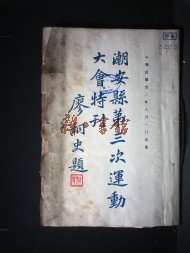 中華民國廿一年八月一日出版
潮安縣第三次運動
大會特刊
廖桐史題